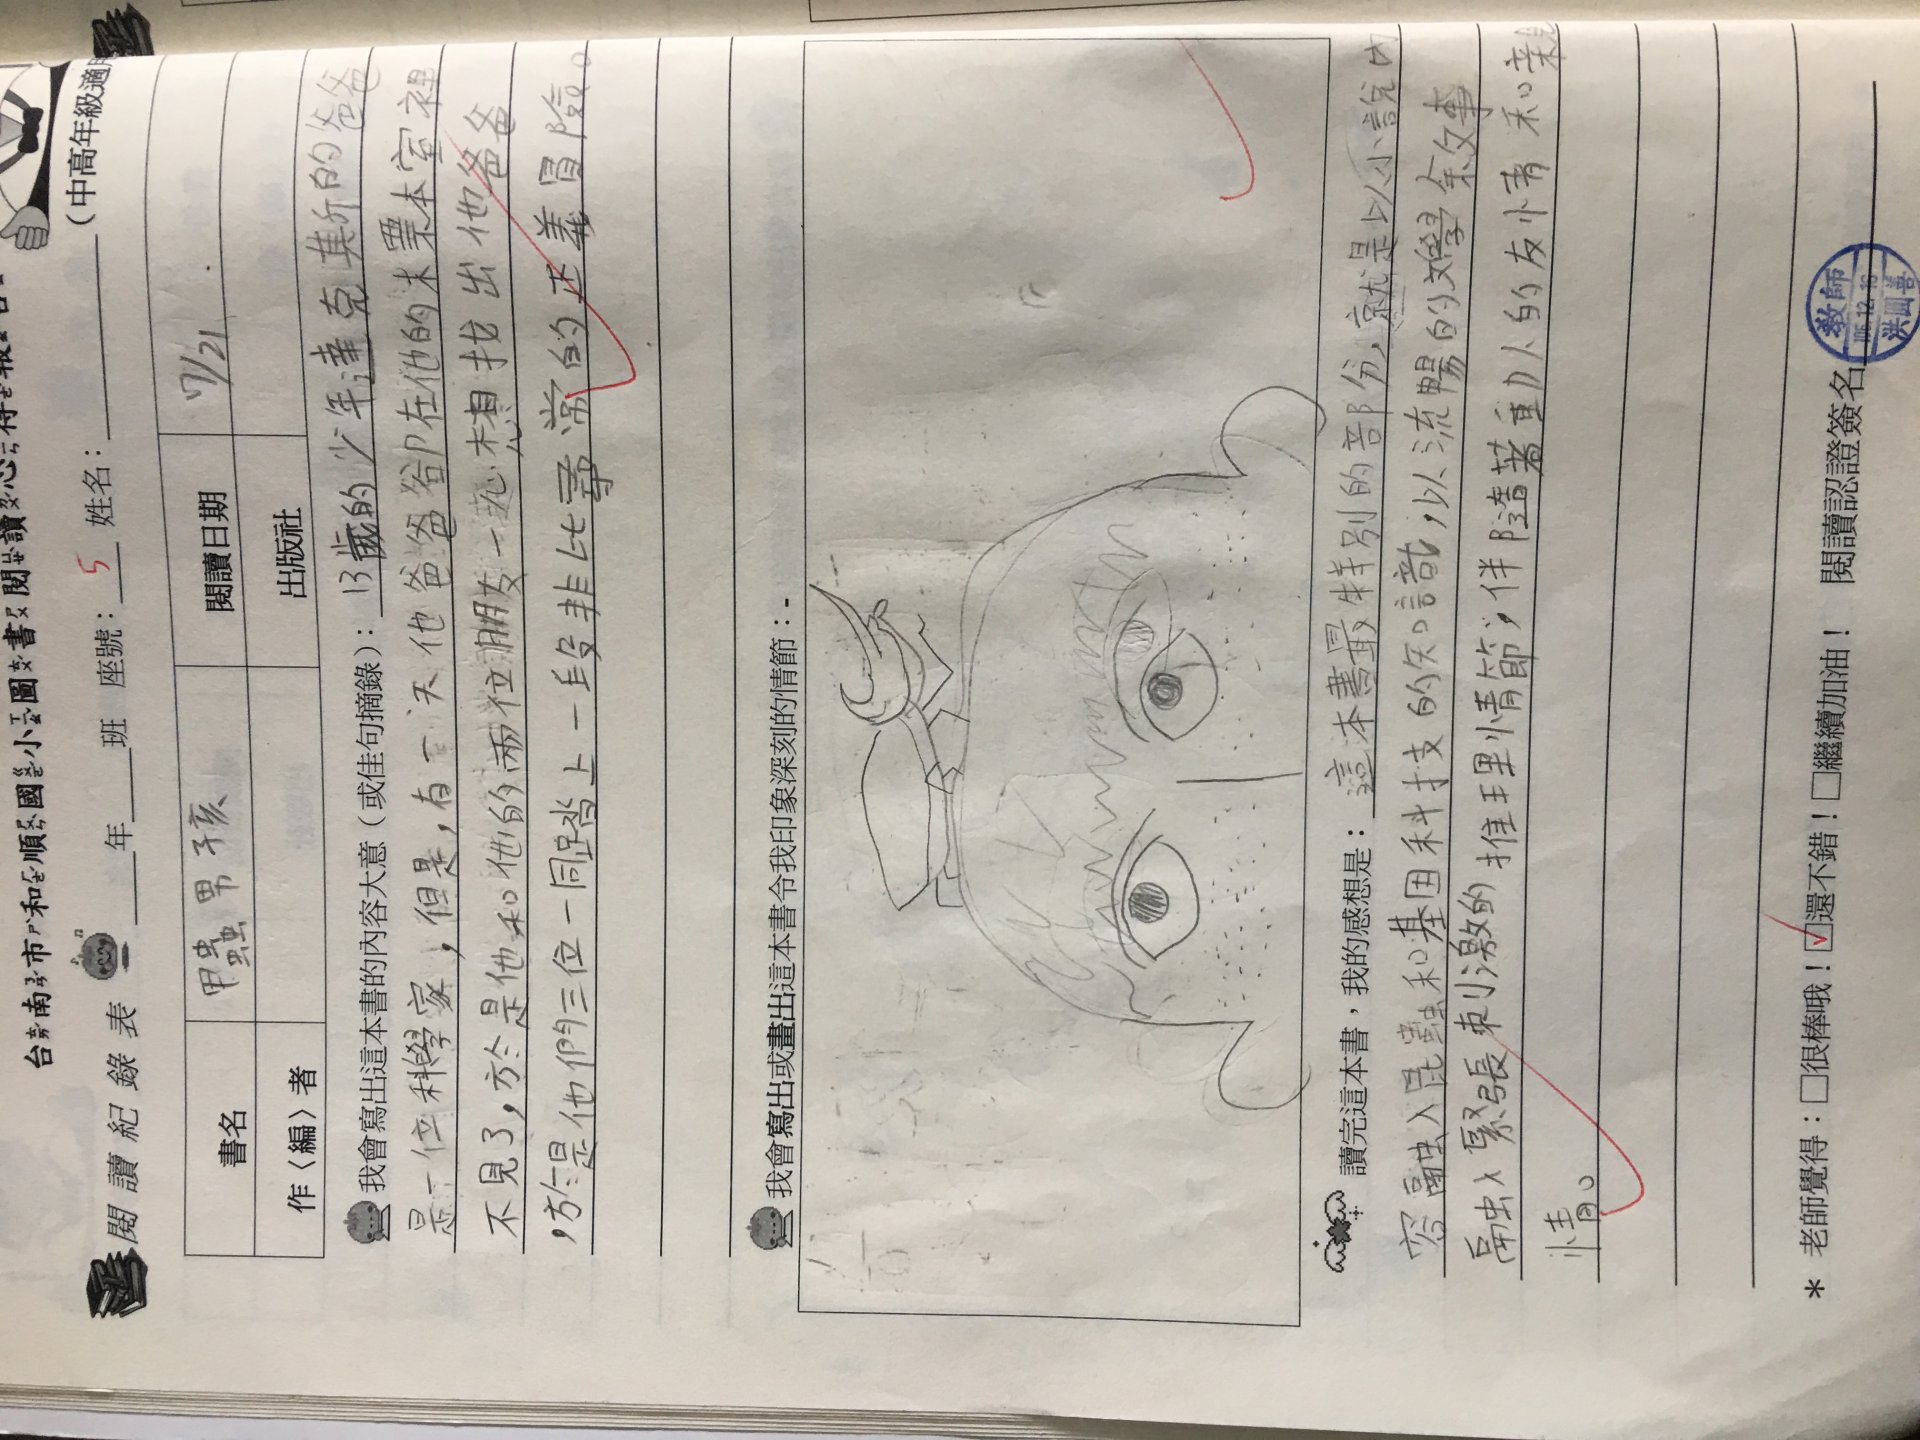 台南市和順國小圖書閱讀心得報告
閱讀紀錄表 ___年___班 座號：5 姓名：______（中高年級適用
書名 甲蟲男孩 閱讀日期 7/21
作〈編〉者 出版社
我會寫出這本書的內容大意（或佳句摘錄）：13歲的少年達克斯的爸爸
是一位科學家，但是，有一天他爸爸卻在他的木票本室裡
不見了，於是他和他的兩位朋友一起想找出他爸爸
，於是他們三位一同踏上一段非比尋常的正義冒險。
我會寫出或畫出這本書令我印象深刻的情節：
讀完這本書，我的感想是：這本書最特別的部份，就是以小說內
容融入昆蟲和基因科技的知識，以流暢的文學敘事
融入緊張刺激的推理情節，伴隨著動人的友情和親
情。
* 老師覺得：□很棒哦！☑還不錯！□繼續加油！ 閱讀認證簽名
教師
洪圓善